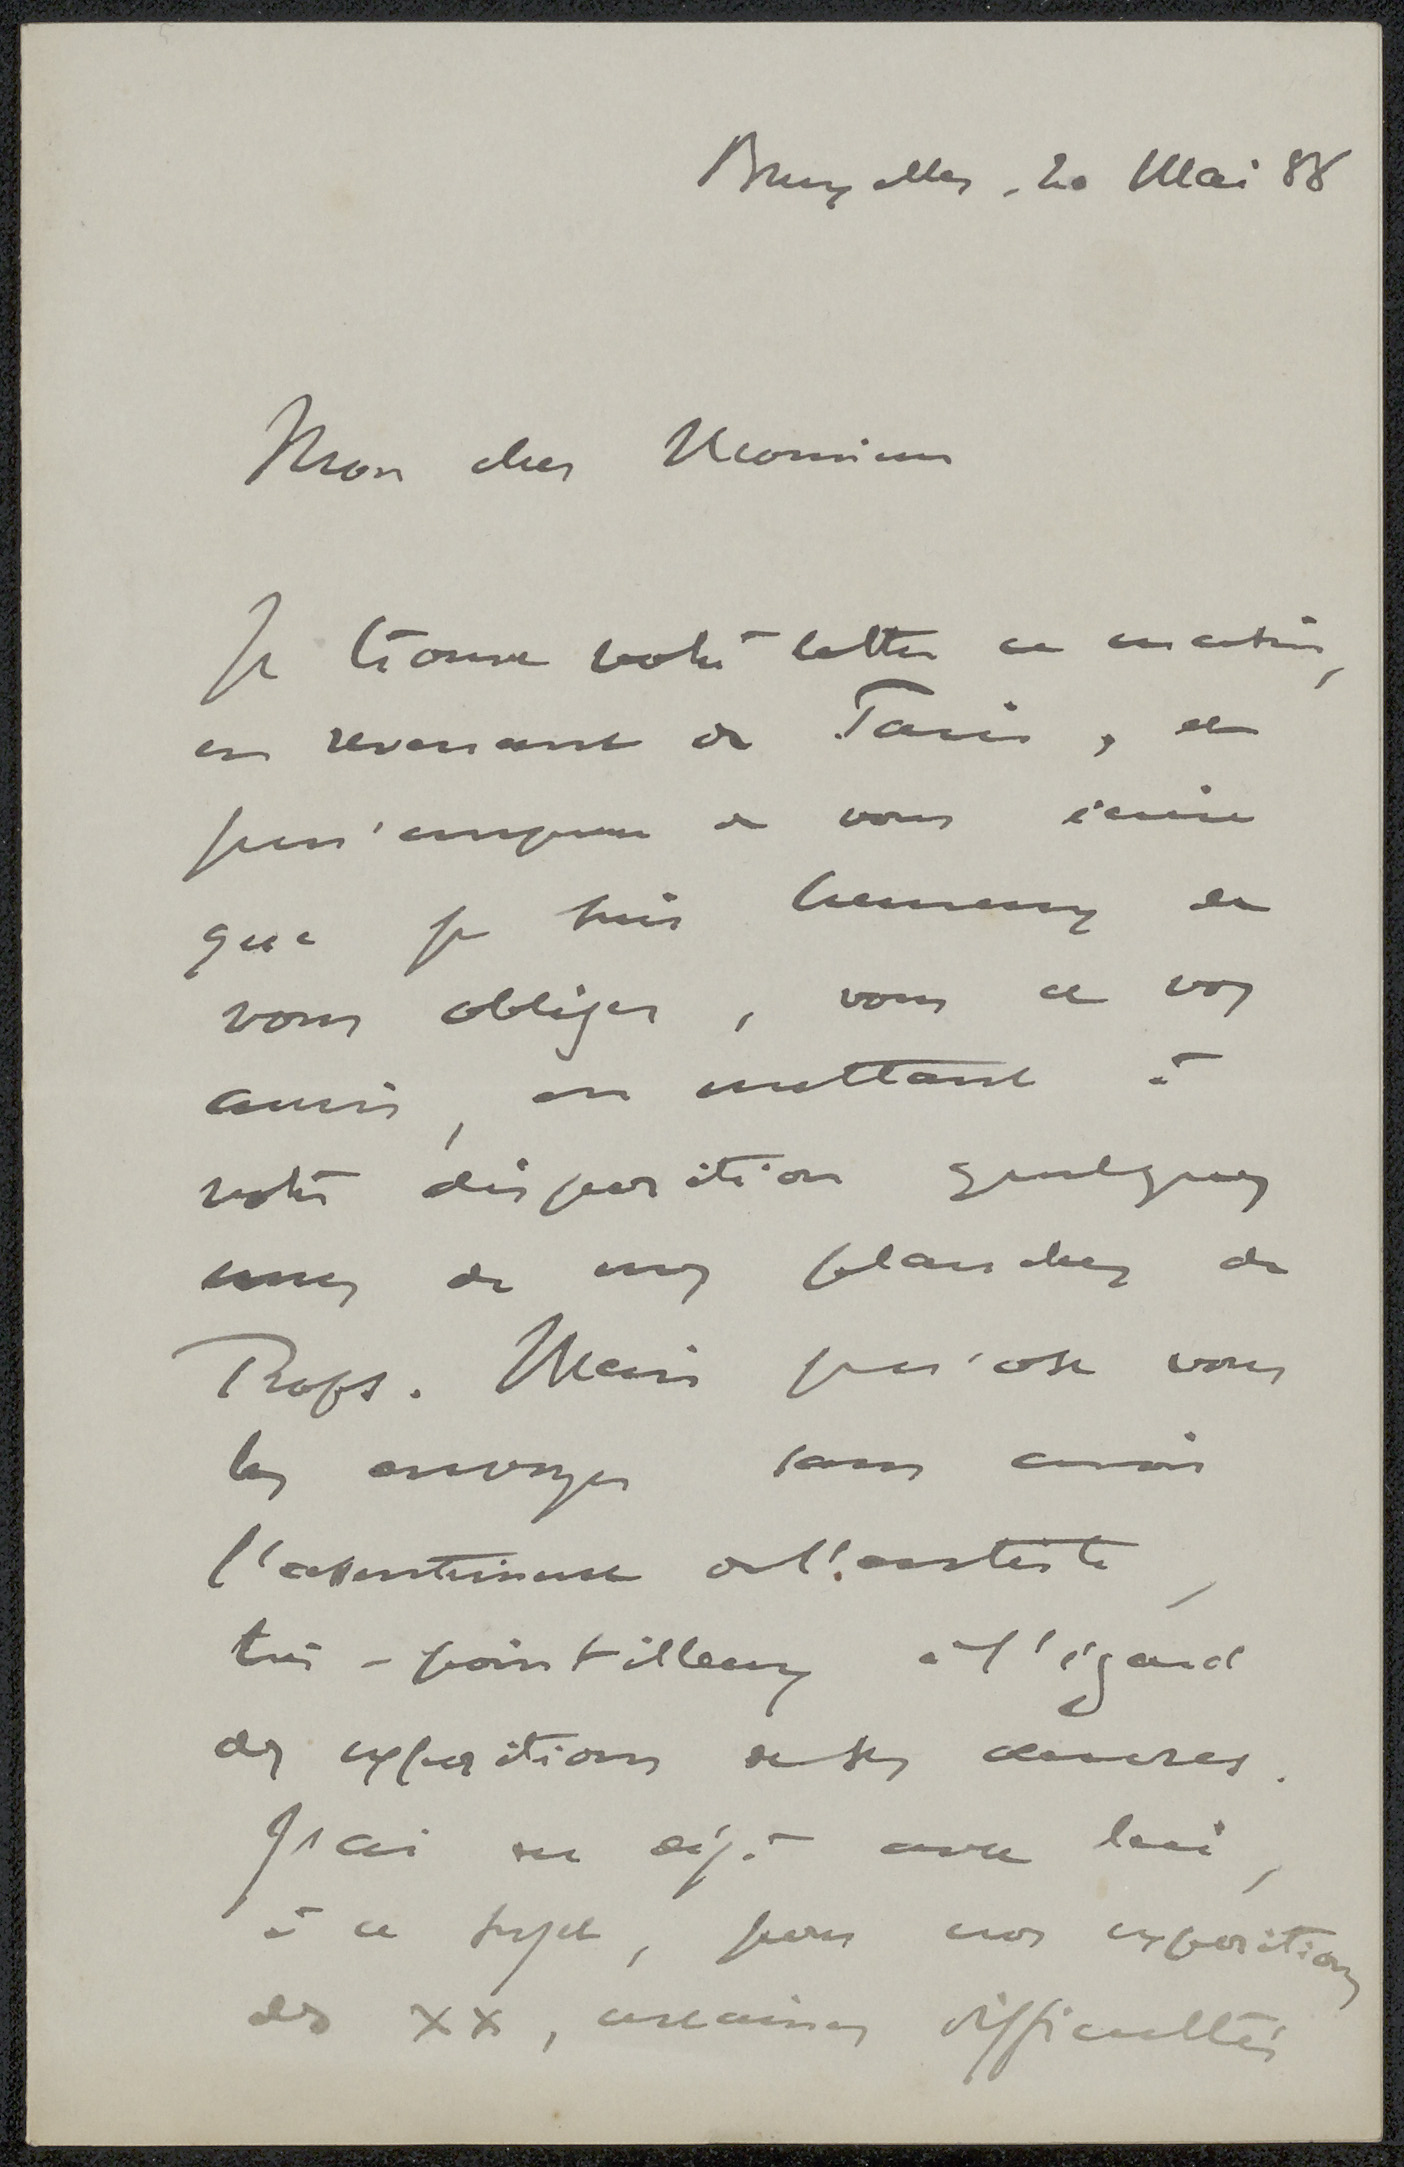 Bruxelles, 20 Mai 88
Mon cher Monsieur
Je trouve votre lettre ce matin,
en revenant de Paris, et
je m'empresse de vous écrire
que je suis heureux de
vous obliger, vous et vos
amis, en mettant à
votre disposition quelques
unes de mes planches de
Rops. Mais je n'ose vous
les envoyer sans avoir
l'assentiment de l'artiste,
très-pointilleux à l'égard
des expositions de ses oeuvres.
J'ai eu déjà avec lui,
à ce sujet, pour nos expositions
des XX, certaines difficultés